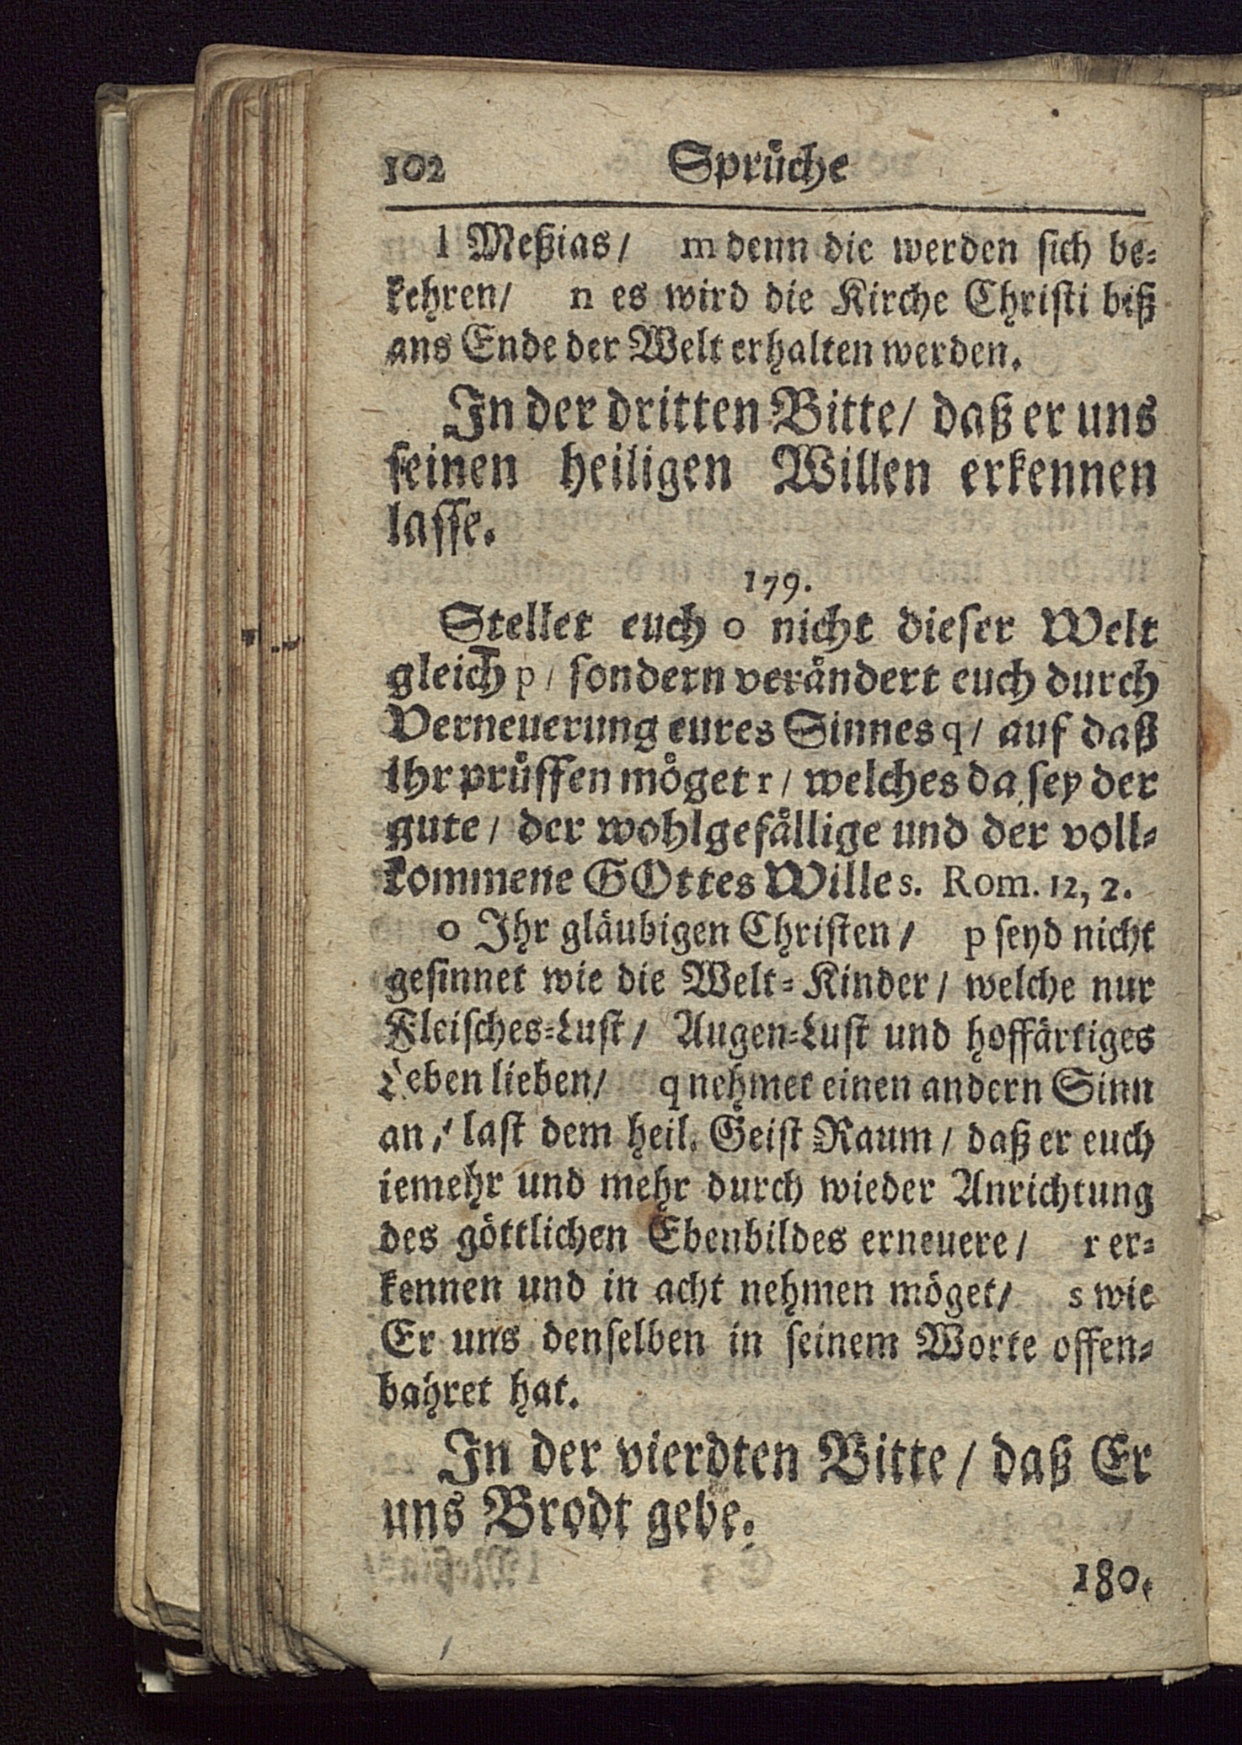 102 Sprüche
l Meßias/ m denn die werden sich be-
kehren/ n es wird die Kirche Christi biß
ans Ende der Welt erhalten werden.
In der dritten Bitte/ daß er uns
seinen heiligen Willen erkennen
lasse.
179.
Stellet euch o nicht dieser Welt
gleich p/ sondern verändert euch durch
Verneuerung eures Sinnes q/ auf daß
ihr prüffen möget r/ welches da sey der
gute/ der wohlgefällige und der voll-
kommene GOttes Wille s. Rom. 12, 2.
o Ihr gläubigen Christen/ p seyd nicht
gesinnet wie die Welt-Kinder/ welche nur
Fleisches-Lust/ Augen-Lust und hoffärtiges
Leben lieben/ q nehmet einen andern Sinn
an/ last dem heil. Geist Raum/ daß er euch
iemehr und mehr durch wieder Anrichtung
des göttlichen Ebenbildes erneuere/ r er-
kennen und in acht nehmen möget/ s wie
Er uns denselben in seinem Worte offen-
bahret hat.
In der vierdten Bitte/ daß Er
uns Brodt gebe.
180.